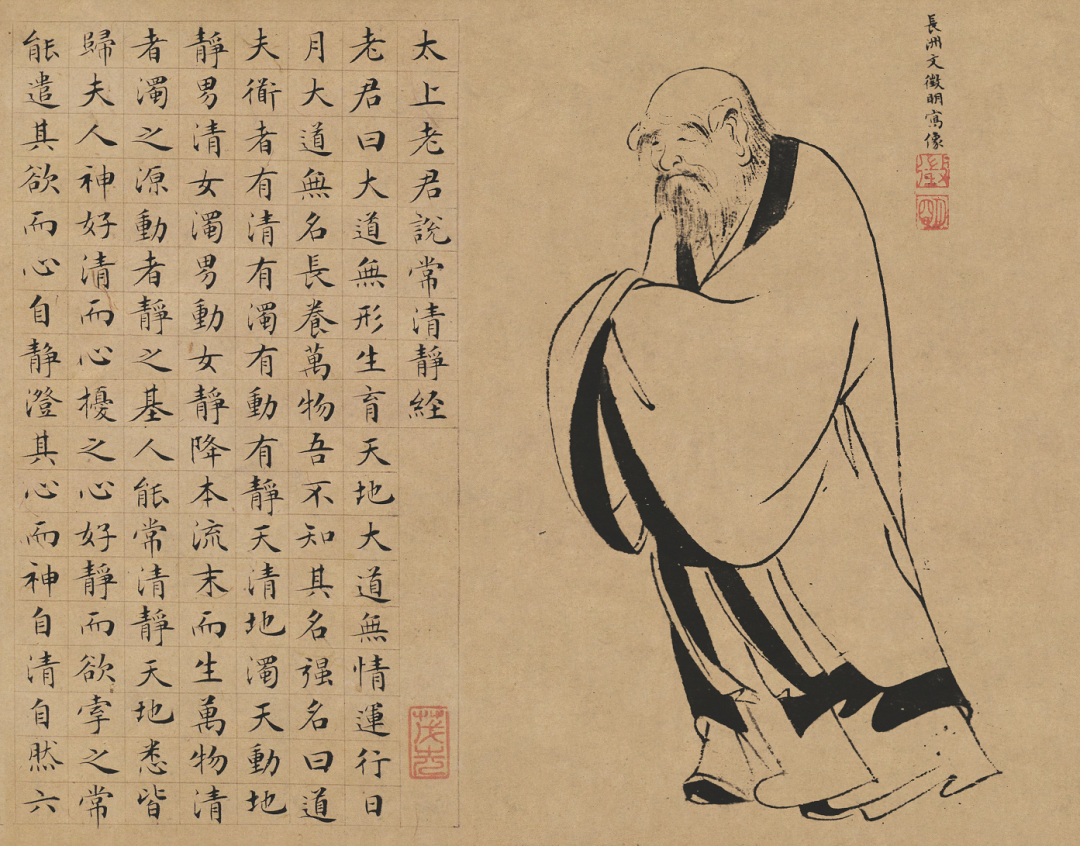 長洲文徵明寫像
徵
明
太上老君說常清靜経
老君曰大道無形生育天地大道無情運行日
月大道無名長養萬物吾不知其名强名曰道
夫衜者有清有濁有動有靜天清地濁天動地
靜男清女濁男動女靜降本流末而生萬物清
者濁之源動者靜之基人能常清靜天地悉皆
歸夫人神好清而心擾之心好靜而欲牽之常
能遣其欲而心自静澄其心而神自清自然六